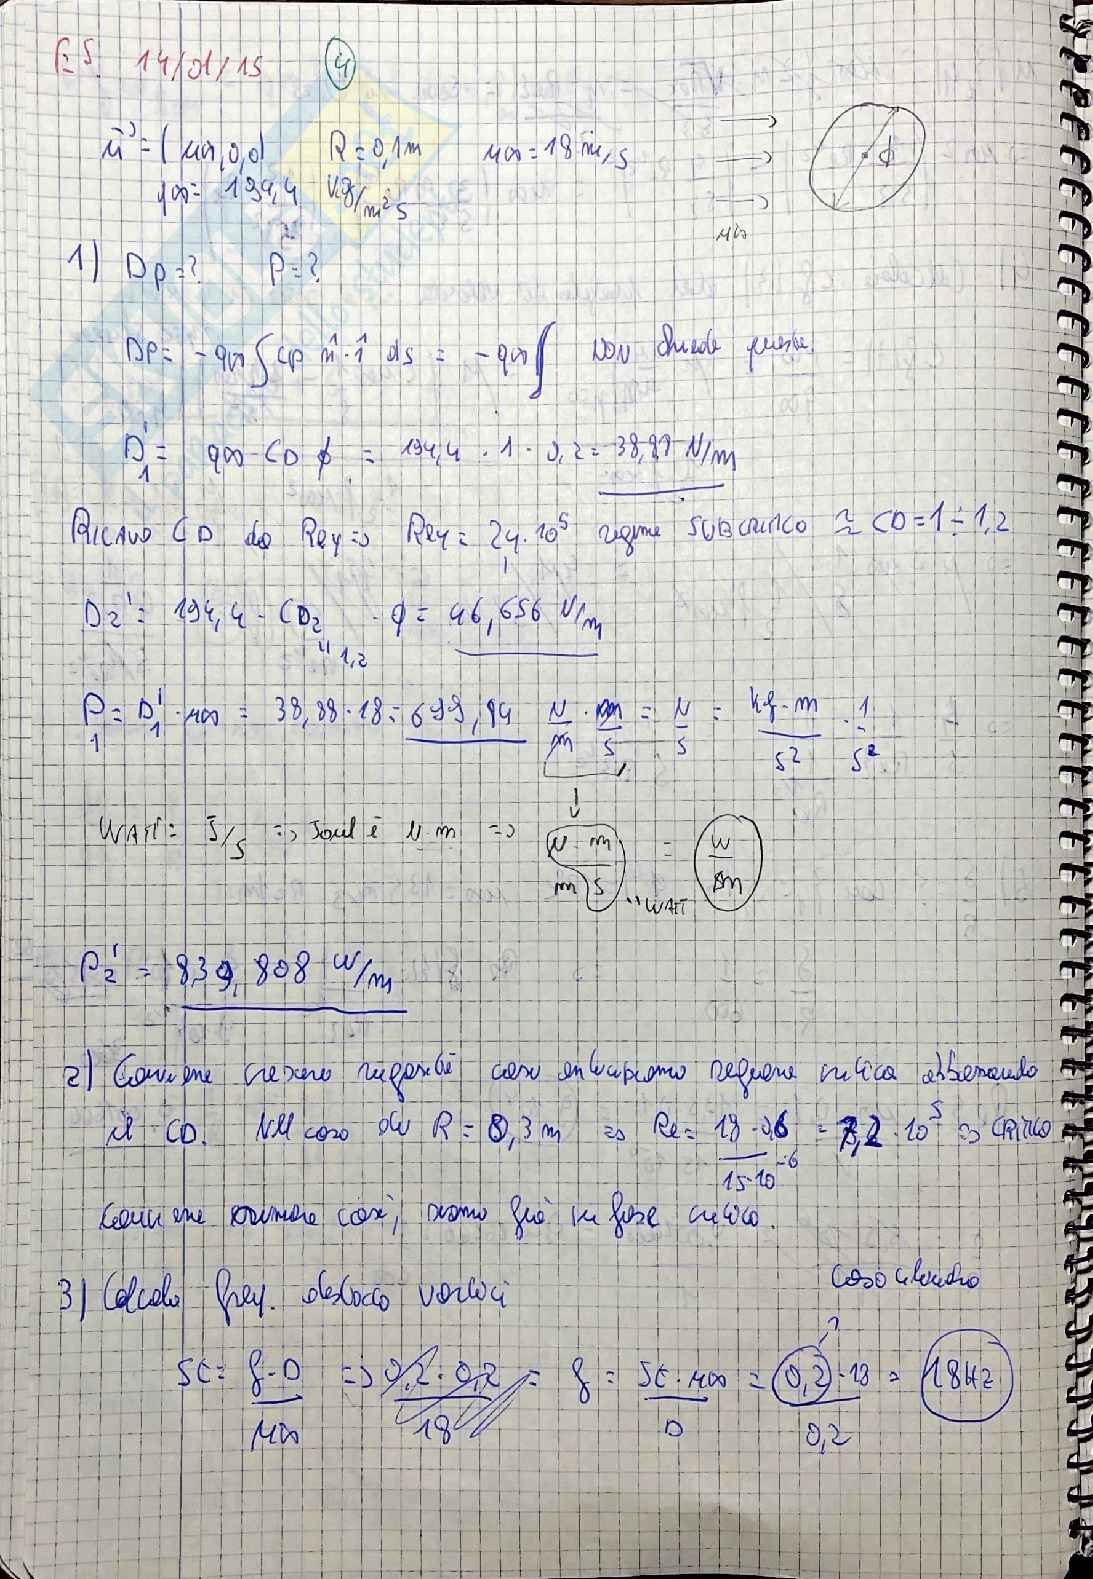 ES. 14/01/15 4
u = (u∞,0,0) R = 0,1m u∞ = 18 m/s
q∞ = 194,4 kg/m²s
u∞
1) Dp = ? P = ?
Dp = -q∞ ∫ Cp n̂·î ds = -q∞ ∫ NON chiede questa
D'1 = q∞ CD ϕ = 194,4 · 1 · 0,2 = 38,87 N/m
RICAVO CD da Rey => Rey = 2,4·10⁵ regime SUBCRITICO ≅ CD = 1 ÷ 1,2
D2' = 194,4 · CD2 · ϕ = 46,656 N/m
" 1,2
P1 = D'1 · u∞ = 38,88 · 18 = 699,84 N/m · m/s = N/s = kg·m/s² · 1/s²
WATT = J/s => Joul è N·m => N·m/m·s = W/m
"WATT
P2' = 839,808 W/m
2) Conviene crescere raggio perché così entriamo regione critica abbassando
il CD. Nel caso di R = 0,3m => Re = 18·0,6/15·10⁻⁶ = 7,2·10⁵ => CRITICO
Conviene così, siamo già in fase critica.
3) Calcola freq. distacco vortici
caso cilindro
St = f·D/u∞ => 0,2·0,2/18 = f = St·u∞/D = 0,2·18/0,2 = 18Hz
?